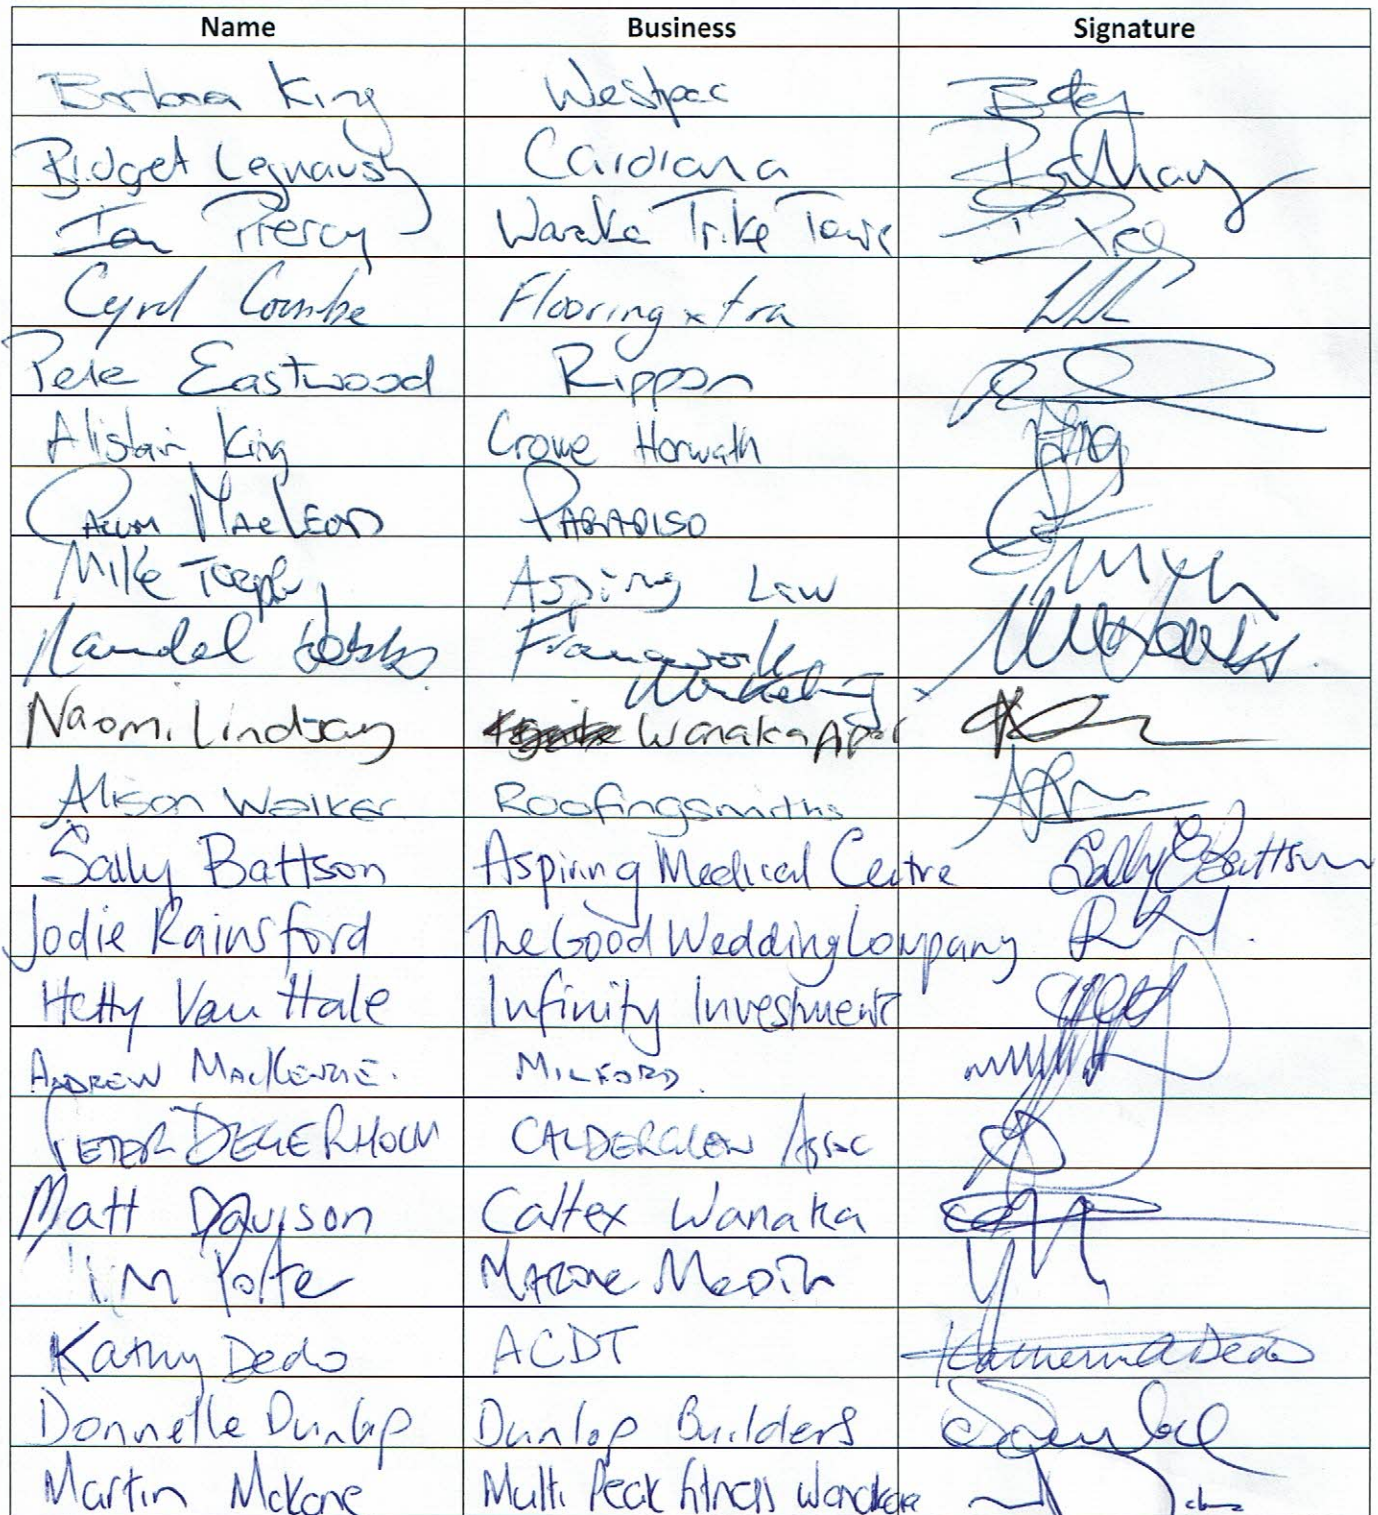 Name Business Signature
Barbara King Westpac
Bridget Cardrona
Ian Piercy Wanaka Trike Tours
Cyril Combe Flooring xtra
Pete Eastwood Rippon
Alistair King Crowe Horwath
Calum MacLeod PARADISO
Mike Aspiring Law
Framework
Marketing
Naomi Lindsay Wanaka Apar
Alison Walker Roofingsmiths
Sally Battson Aspiring Medical Centre Sally E Battson
Jodie Rainsford The Good Wedding Company
Hetty Van Hale Infinity Investment
ANDREW MACKENZIE. MILFORD.
PETER DEGERHOLM CALDERGLEN Assoc
Matt Davison Caltex Wanaka
Tim Porter
Kathy Dedo ACDT Katherine A Dedo
Donnelle Dunlop Dunlop Builders
Martin McKone Multi Peak fitness Wanaka